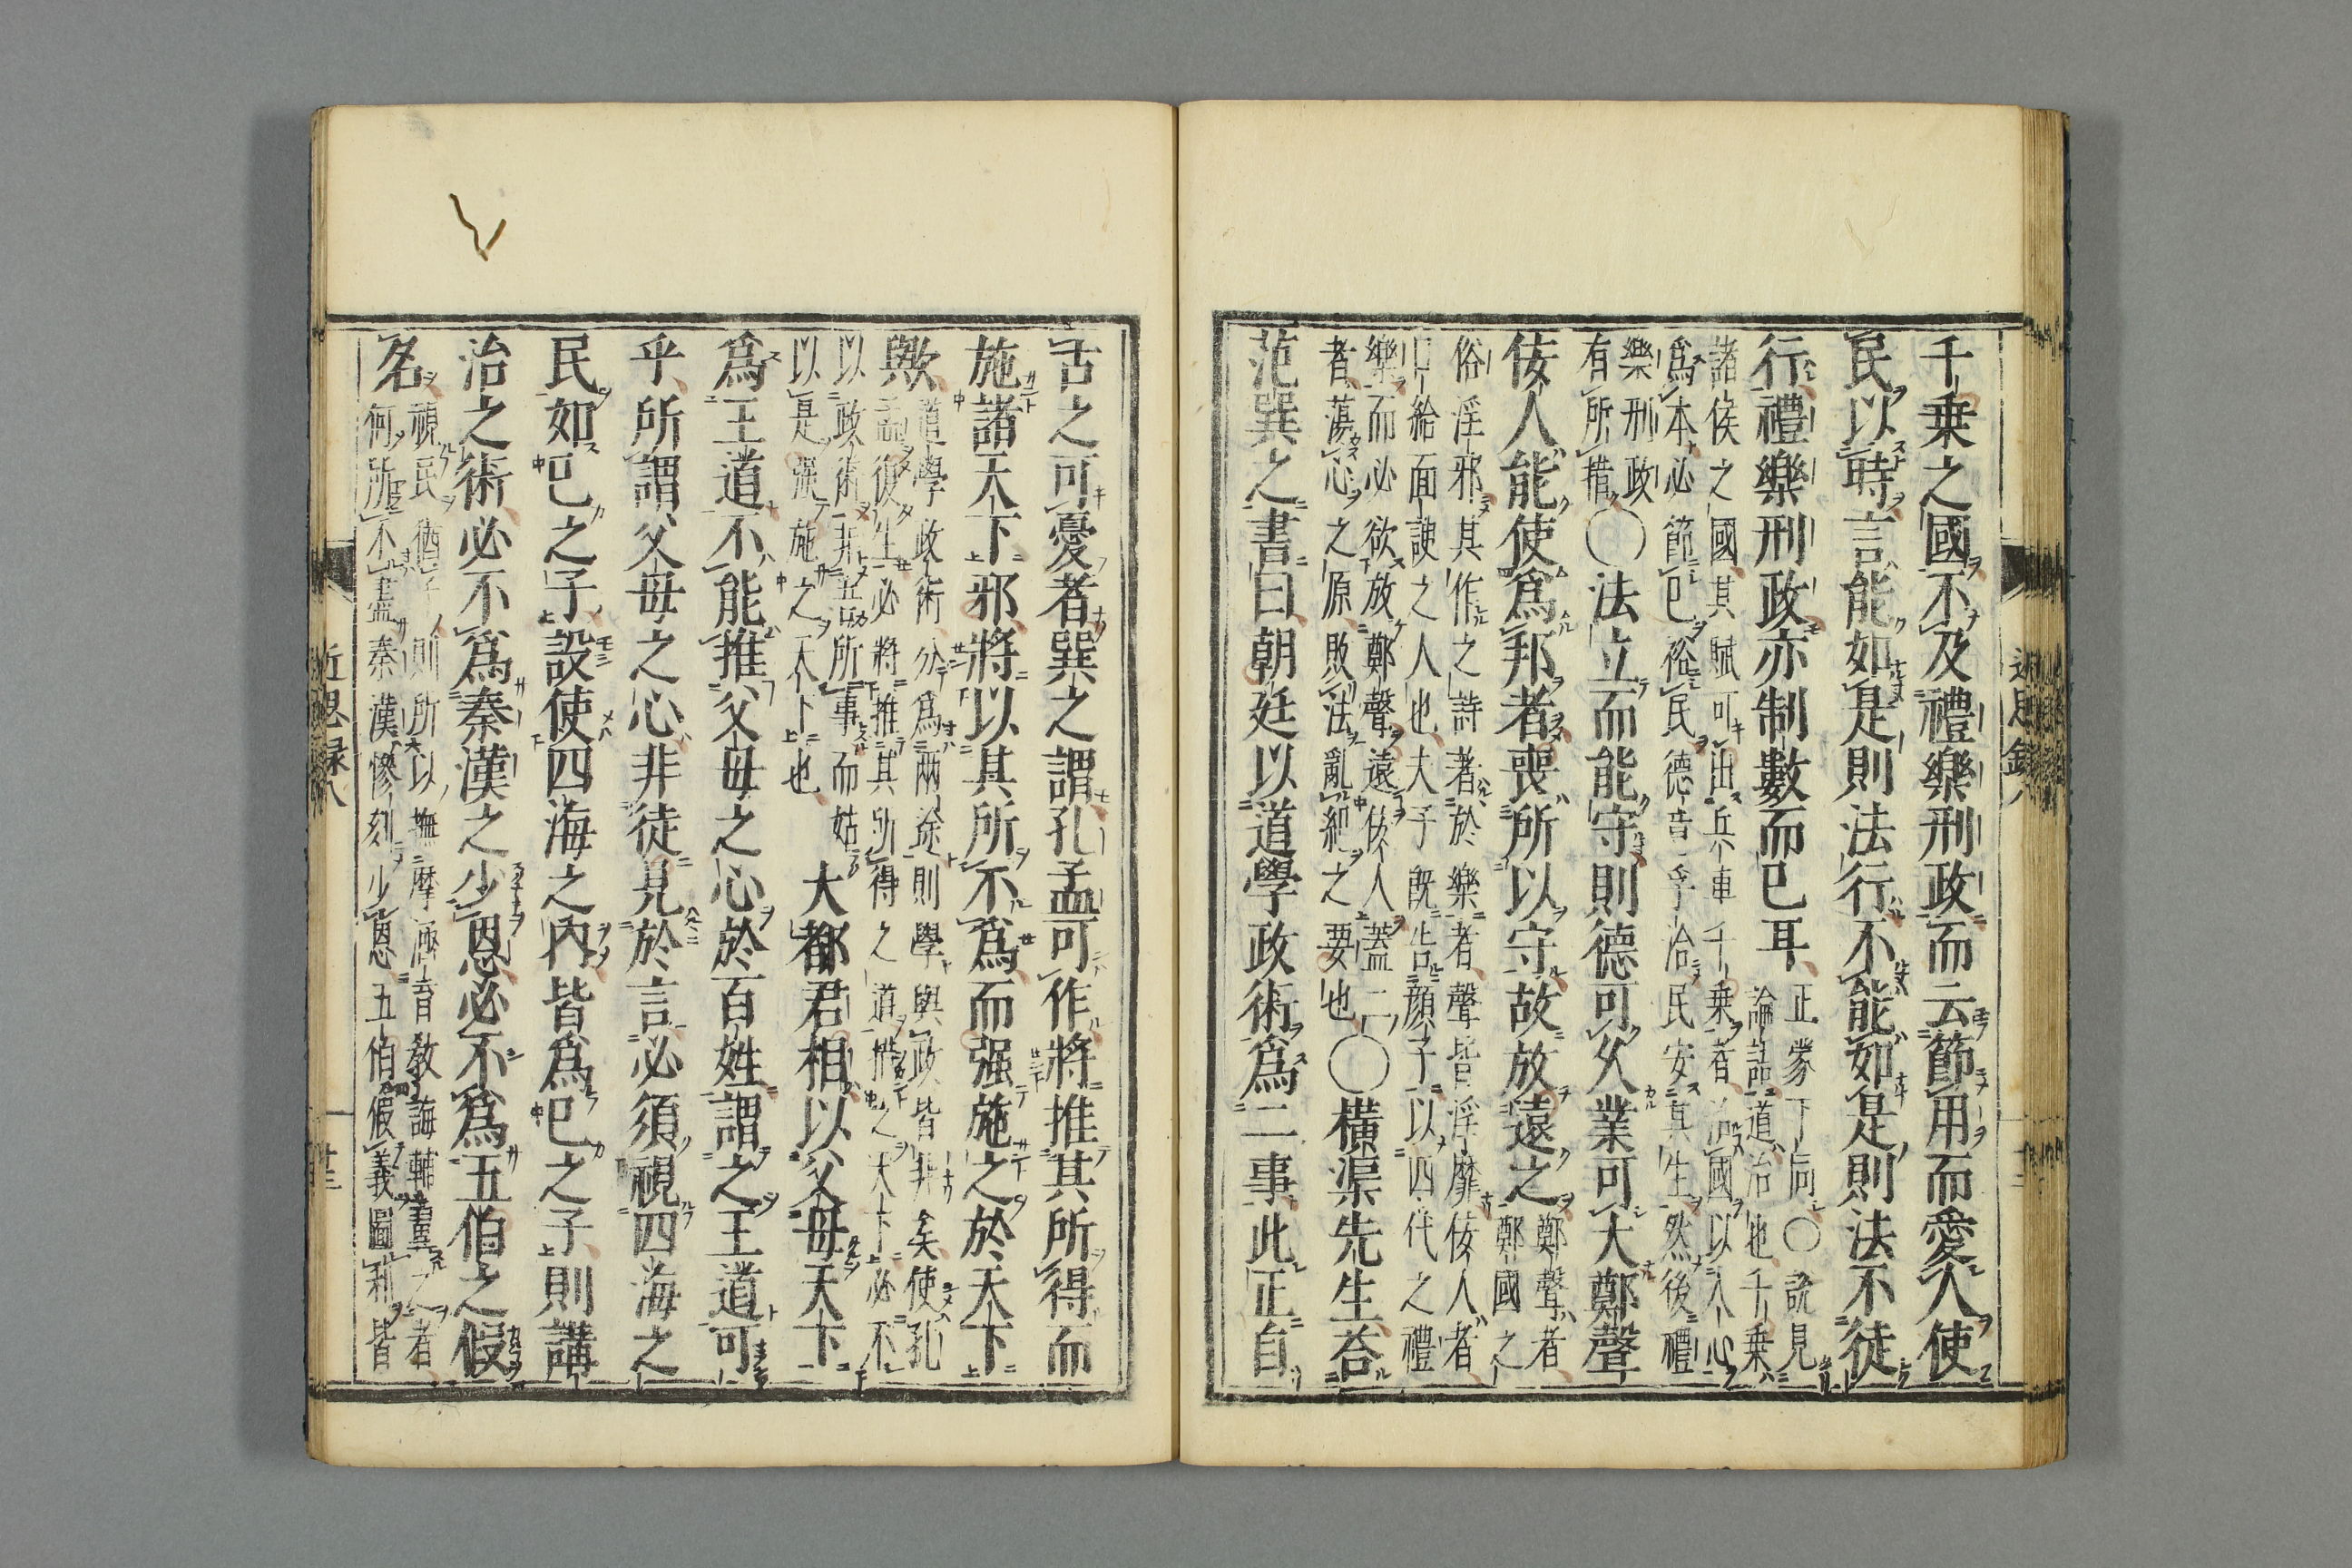 千乗之國不及禮樂刑政而云節用而愛人使
民以時言能如是則法行不能如是則法不徒
行禮樂刑政亦制數而已耳
正蒙下同〇說見
論語道治也千乗
諸侯之國其賦可出兵車千乗者治國以人心
爲本必節已裕民德音孚洽民安其生然後禮
樂刑政
有所措
〇法立而能守則德可久業可大鄭聲
佞人能使爲邦者喪所以守故放遠之
鄭聲者
鄭國之
俗淫邪其作之詩者於樂者聲皆淫靡佞人者
口給面諛之人也夫子既告顔子以四代之禮
樂而必欲放鄭聲遠佞人蓋二
者蕩心之原敗法亂紀之要也
〇橫渠先生荅
范巽之書曰朝廷以道學政術爲二事此正自
古之可憂者巽之謂孔孟可作將推其所得而
施諸天下邪將以其所不爲而强施之於天下
歟
道學政術分爲兩途則學與政皆非矣使孔
孟復生必將推其所得之道措之天下必不
以政術非吾所事而姑
以是强施之天下也
大都君相以父母天下
爲王道不能推父母之心於百姓謂之王道可
乎所謂父母之心非徒見於言必須視四海之
民如已之子設使四海之內皆爲已之子則講
治之術必不爲秦漢之少恩必不爲五伯之假
名
視民猶子則所以撫摩涵育敎誨輔翼之者
何所不盡秦漢慘刻少恩五伯假義圖利皆
近思録八